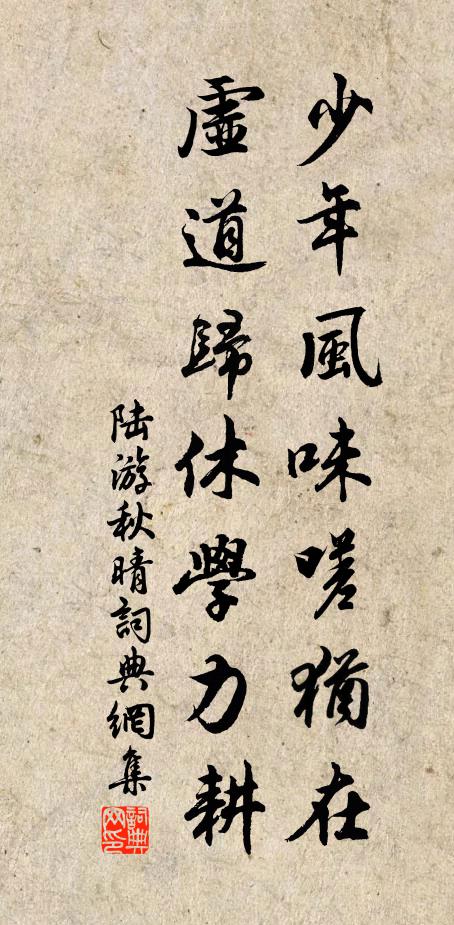 少年風味嗟猶在
虛道歸休學力耕
陆游秋晴詞典網集
詞典網印